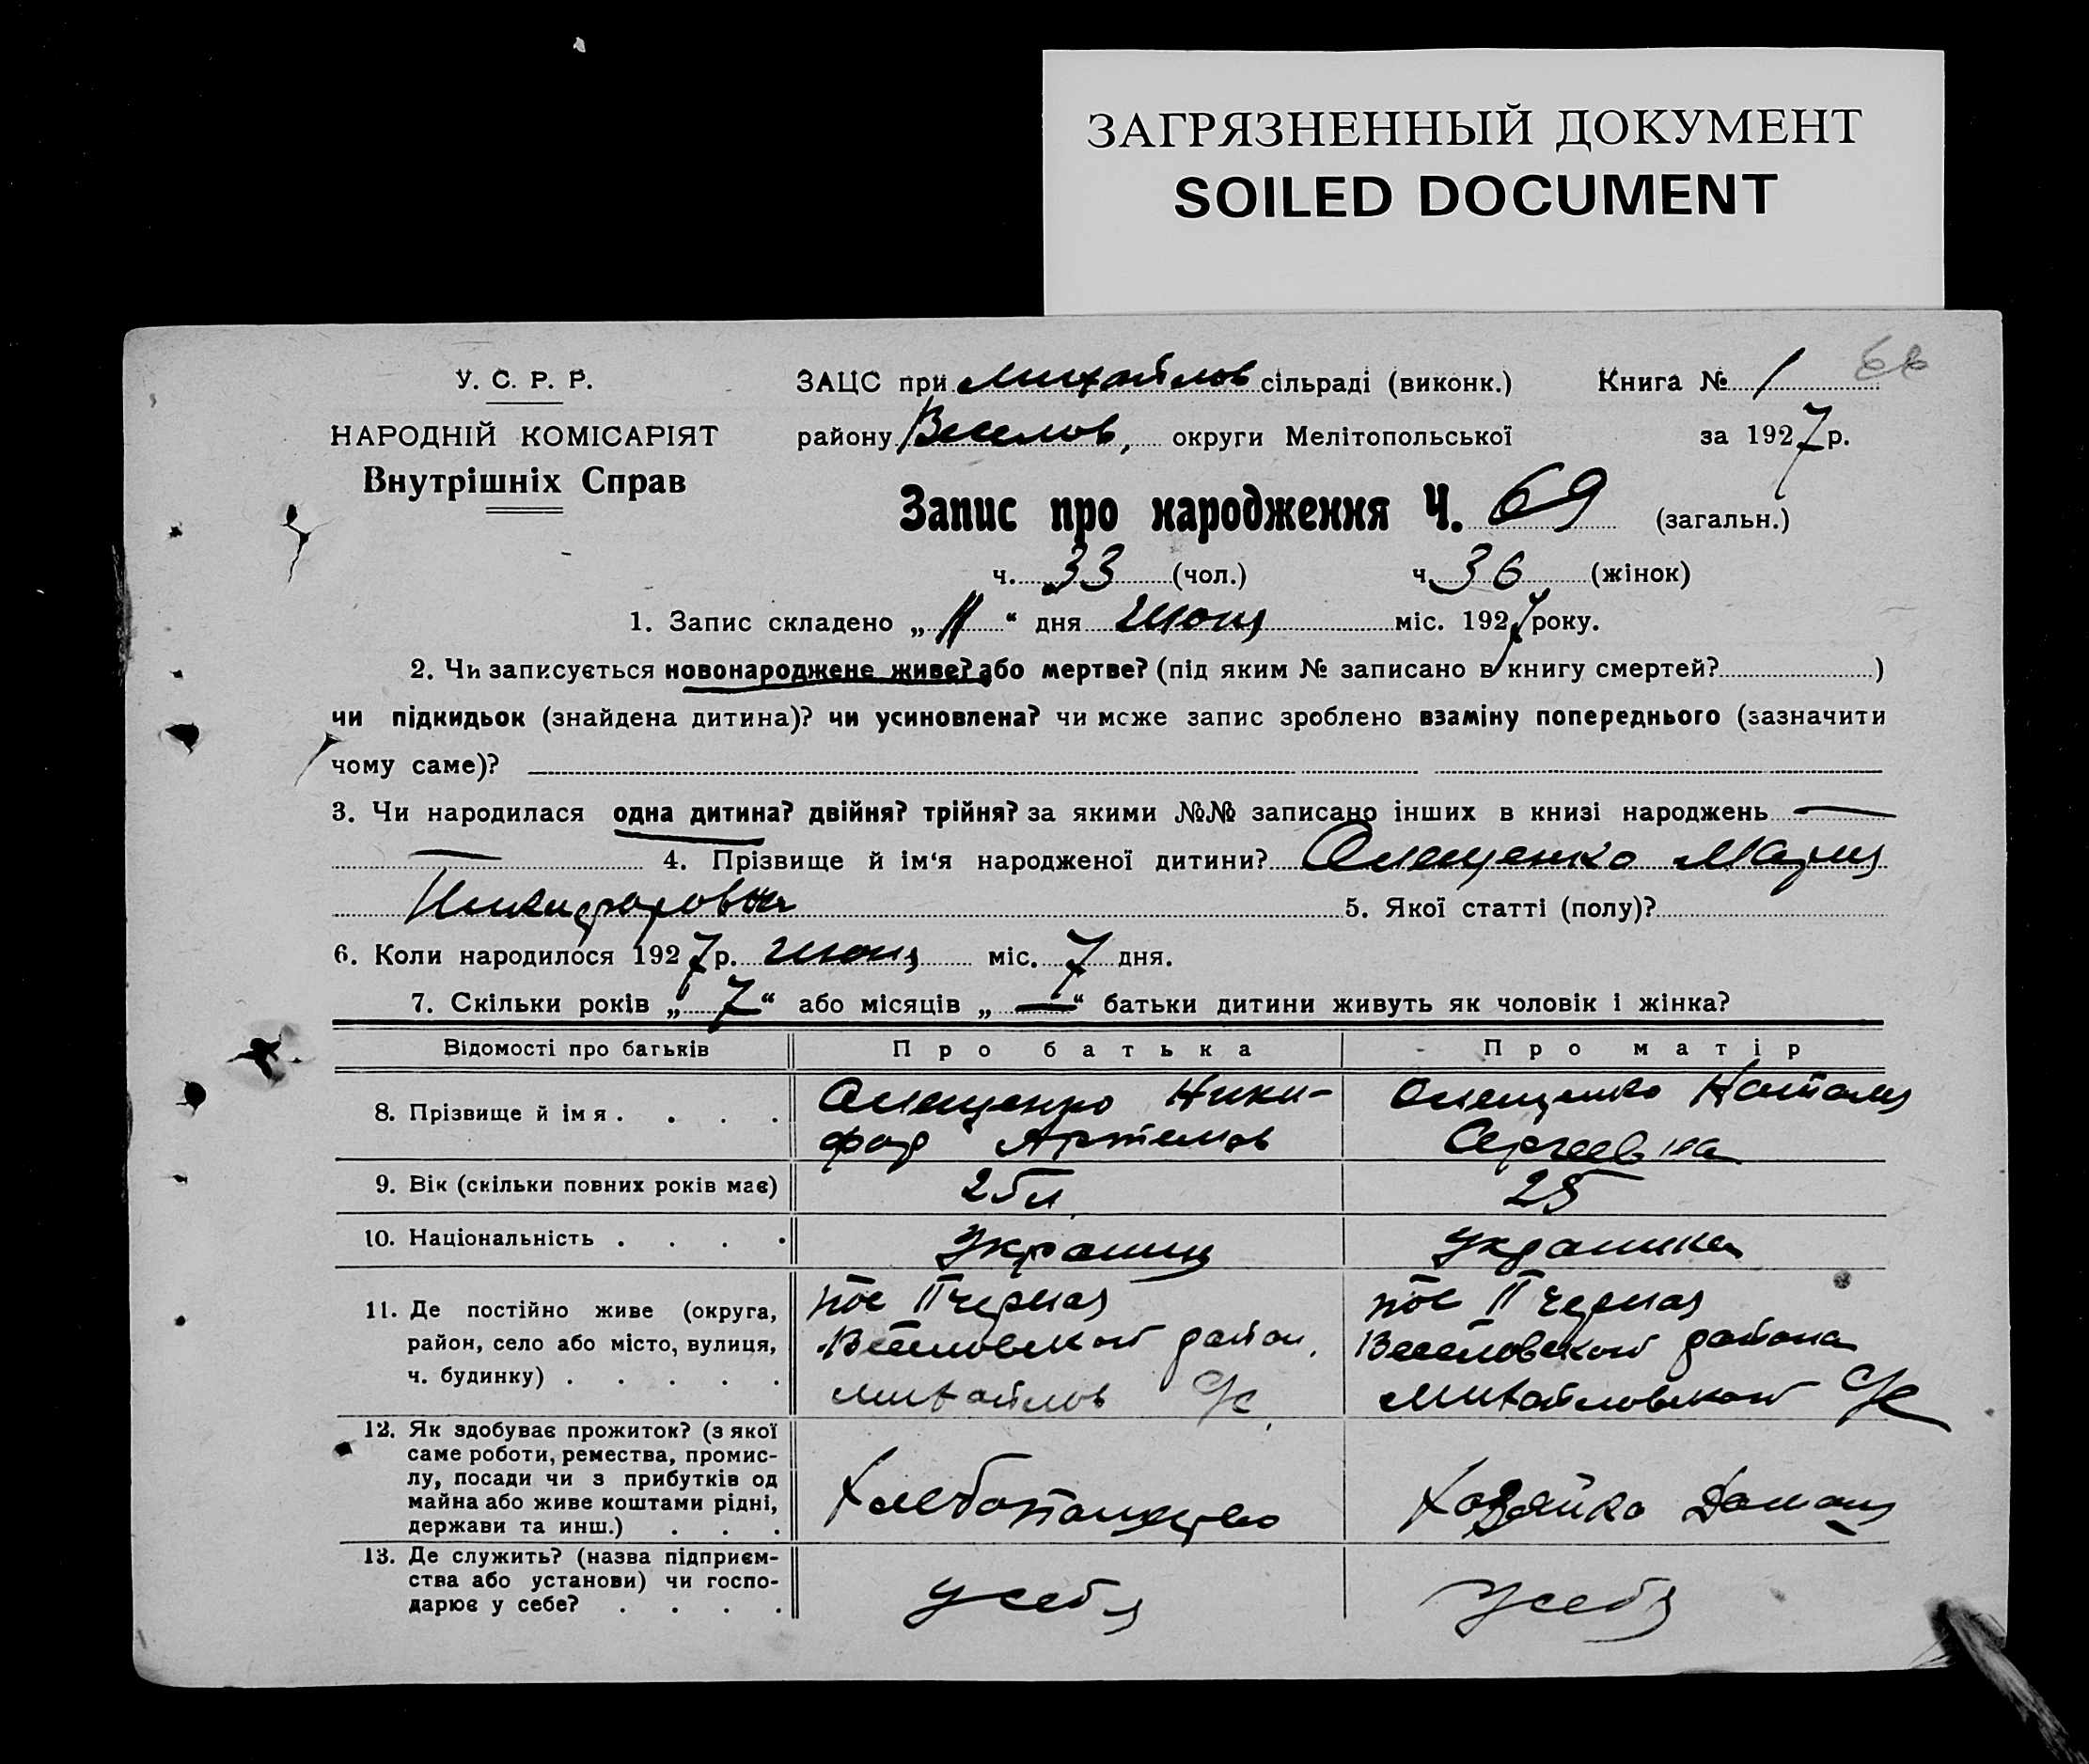 ЗАГРЯЗНЕННЫЙ ДОКУМЕНТ
SOILED DOCUMENT
66
У. С. Р. Р.
НАРОДНІЙ КОМІСАРІЯТ
Внутрішніх Справ
ЗАЦС при Михайлов сільраді (виконк.) Книга № 1
району Веселов, округи Мелітопольської за 1927 р.
Запис про народження Ч. 69 (загальн.)
ч. 33 (чол.) ч. 36 (жінок)
1. Запис складено „11“ дня Июня міс. 1927 року.
2. Чи записується новонароджене живе? або мертве? (під яким № записано в книгу смертей? )
чи підкидьок (знайдена дитина)? чи усиновлена? чи може запис зроблено взаміну попереднього (зазначити
чому саме)?
3. Чи народилася одна дитина? двійня? трійня? за якими №№ записано інших в книзі народжень —
— 4. Прізвище й ім‘я народженої дитини? Онещенко Мария
Никифоровна 5. Якої статті (полу)?
6. Коли народилося 1927 р. июня міс. 7 дня.
7. Скільки років „7“ або місяців „—“ батьки дитини живуть як чоловік і жінка?
Відомості про батьків Про батька Про матір
8. Прізвище й ім я . . . . Онещенко Ники-
фор Артемов
Онещенко Наталия
Сергеевна
9. Вік (скільки повних років має) 25 л 25
10. Національність . . . . Украинец Украинка
11. Де постійно живе (округа,
район, село або місто, вулиця,
ч. будинку) . . . . .
пос II Черная
Веселовской район.
Михайлов С/С
пос II Черная
Веселовской района
Михайловской С/С
12. Як здобуває прожиток? (з якої
саме роботи, ремества, промис-
лу, посади чи з прибутків од
майна або живе коштами рідні,
держави та инш.) . . .
Хлебопашество
Хозяйка Дома
13. Де служить? (назва підприєм-
ства або установи) чи госпо-
дарює у себе? . . . .
У себя
У себя